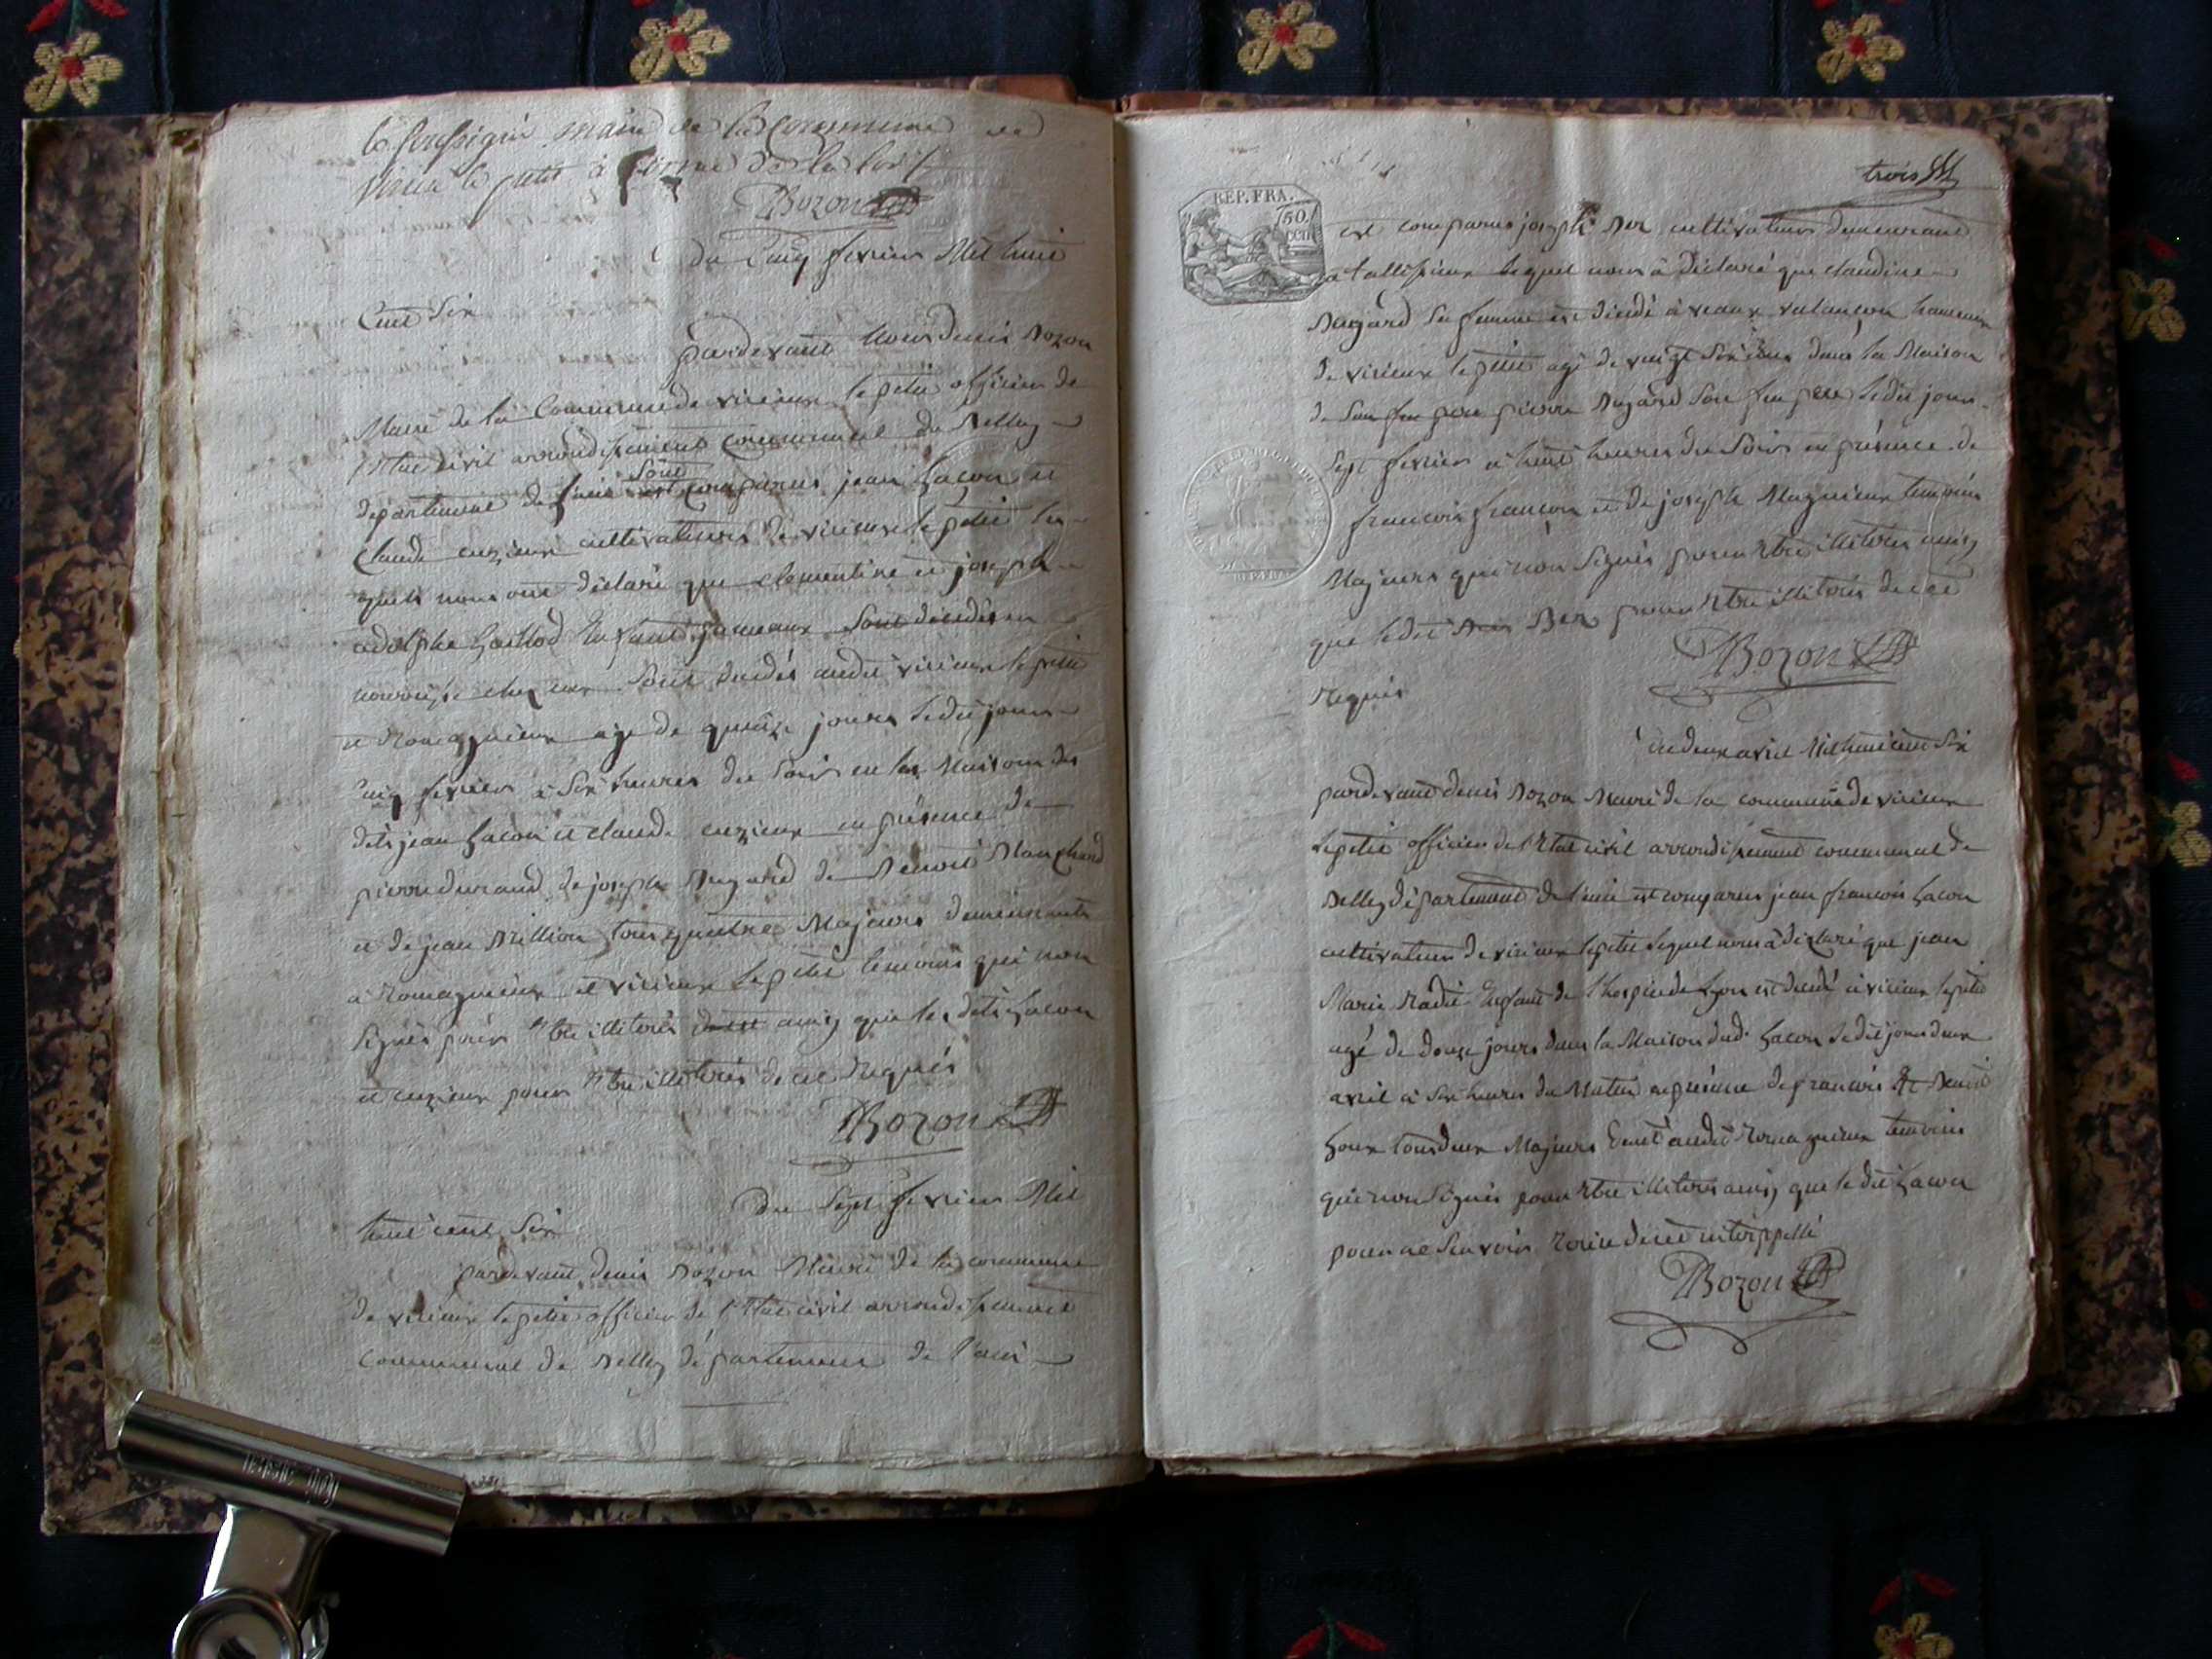 le soussigné maire de la Commune de
Virieu le petit à forme de la loi
Bozon
du Cinq fevrier Mil huit
Cent Six
pardevant Nous denis Bozon
Maire de la Commune de virieux le petit officier de
l'Etat civil arrondissement Communal du Belley
département de l'ain sont comparus jean hacon et
Claude cuzieux cultivateurs de virieux le petit les
quels nous ont déclaré que clementine et joseph
adolphe Enfants jumeaux sont décédés en
nourrisse chez eux sont décédés audit virieux le petit
et Romagnieux agé de quinze jours le dit jour
Cinq fevrier à Six heures du Soir en les Maisons des
dits jean hacon et claude cuzieux en présence de
pierre durand de joseph Bugard de Benoit Blanchard
et de jean Million tous quatre Majeurs demeurants
à Romagnieux et virieux le petit temoins qui non
Signés pour Etre illiterés de ce ainsy que les dits hacon
et cuzieux pour Etre illiterés de ce Requis
Bozon
du Sept fevrier Mil
huit cent Six
pardevant denis Bozon Maire de la commune
de virieux le petit officier de l'Etat civil arrondissement
communal de Belley département de l'ain
trois
REP. FRA.
50.
cen
est comparus joseph Ber cultivateur demeurant
à tallissieux lequel nous à déclaré que claudine
Bugard Sa femme est décédé à vaux valancon hameau
de virieux le petit agé de vingt Six ans dans la Maison
de Son feu pere pierre Bugard Son feu pere le dit jour
Sept fevrier à huit heures du Soir en présence de
francois françon et de joseph Magnieux temoins
Majeurs qui non Signés pour Etre illiterés ainsy
que le dit Ber pour Etre illiterés de ce
Requis
Bozon
du deux avril Mil huit cent Six
pardevant denis Bozon Maire de la commune de virieux
le petit officier de l'Etat civil arrondissement communal de
Belley département de l'ain est comparus jean francois hacon
cultivateur de virieux le petit lequel nous à déclaré que jean
Marie Enfant de l'hospice de Lyon est décédé à virieux le petit
agé de douze jours dans la Maison dud. hacon le dit jour deux
avril à Six heures du Matin en présence de francois et Benoit
tous deux Majeurs audit Romagnieux temoins
qui non Signés pour Etre illiterés ainsy que le dit hacon
pour ne Savoir de ce interppellé
Bozon